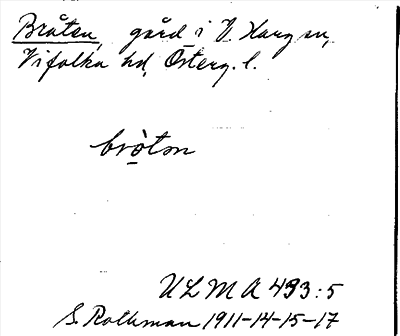 Bråten, gård i V. Harg sn,
Vifolka hd, Österg. l.
bròtən
ULMA 493:5
S. Rothman 1911-14-15-17